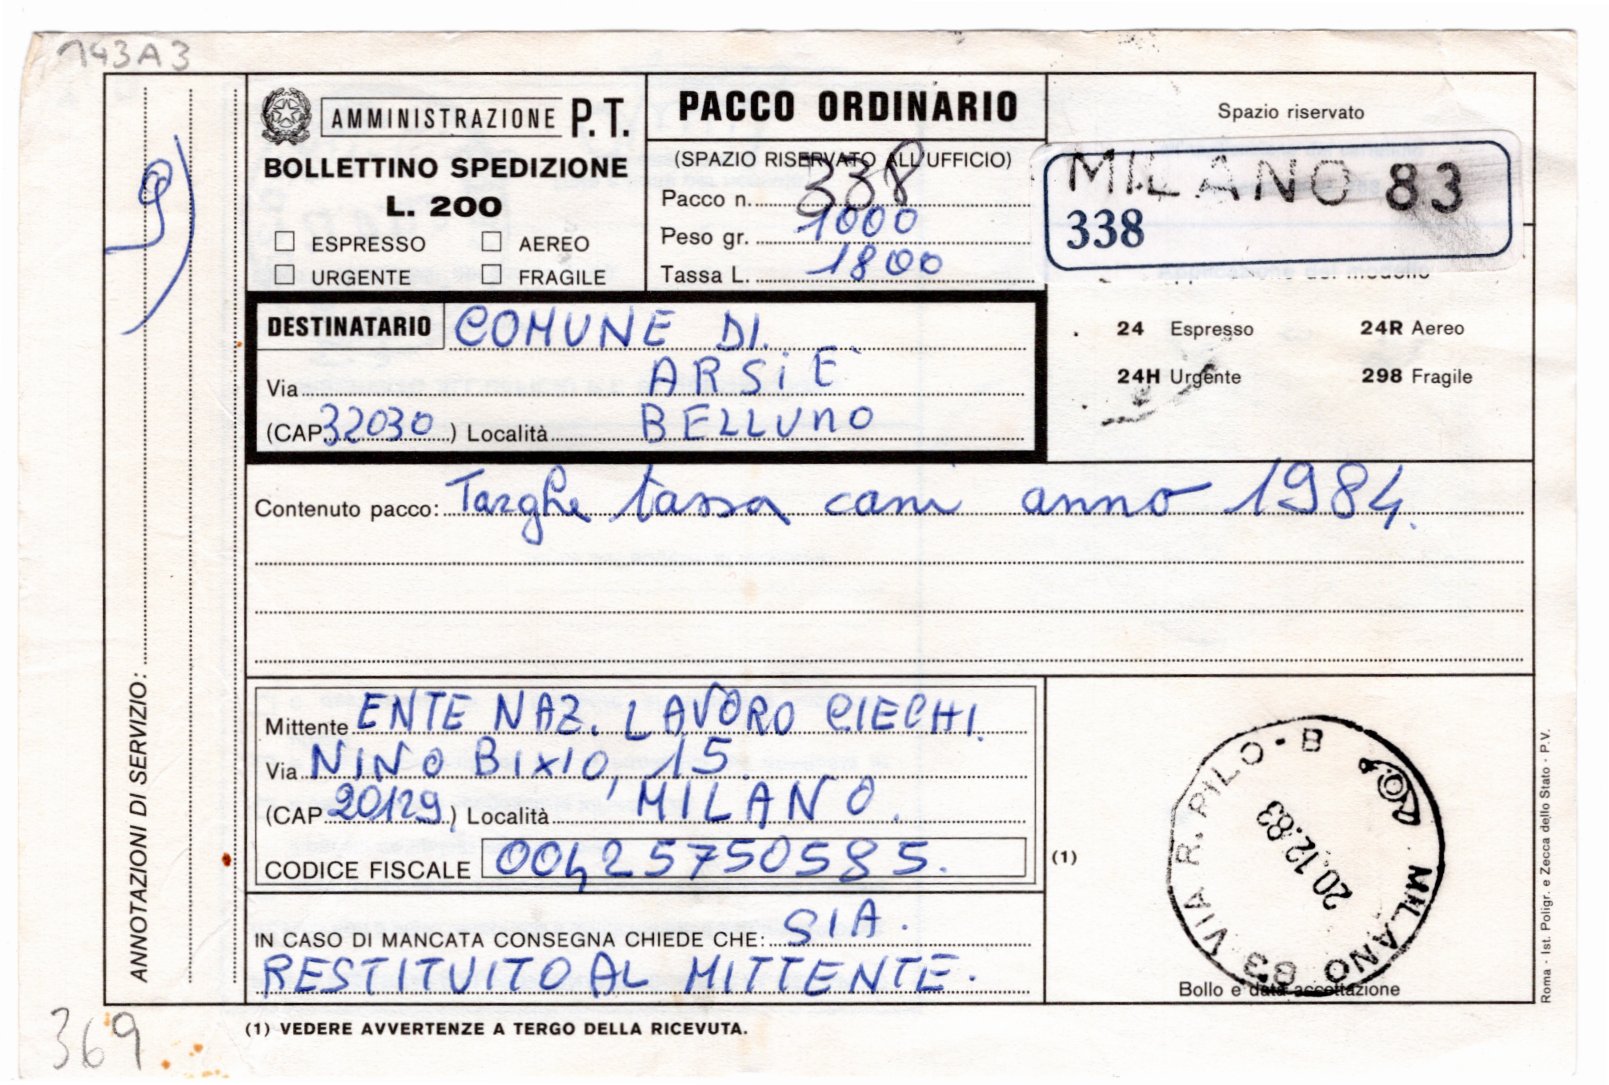 143A3
AMMINISTRAZIONE P.T.
BOLLETTINO SPEDIZIONE
L. 200
ESPRESSO AEREO
URGENTE FRAGILE
PACCO ORDINARIO
(SPAZIO RISERVATO ALL'UFFICIO)
Pacco n. 338
Peso gr. 1000
Tassa L. 1800
Spazio riservato
MILANO 83
338
24 Espresso 24R Aereo
24H Urgente 298 Fragile
DESTINATARIO COMUNE DI
Via ARSIE'
(CAP 32030) Località BELLUNO
Contenuto pacco: Targhe tassa cani anno 1984.
Mittente ENTE NAZ. LAVORO CIECHI.
Via NINO BIXIO, 15
(CAP 20129) Località MILANO.
CODICE FISCALE 00425750585.
(1)
IN CASO DI MANCATA CONSEGNA CHIEDE CHE: SIA.
RESTITUITO AL MITTENTE.
MILANO 83 VIA R. PILO - B
20.12.83
Bollo e data accettazione
ANNOTAZIONI DI SERVIZIO:
Roma - Ist. Poligr. e Zecca dello Stato - P.V.
369
(1) VEDERE AVVERTENZE A TERGO DELLA RICEVUTA.